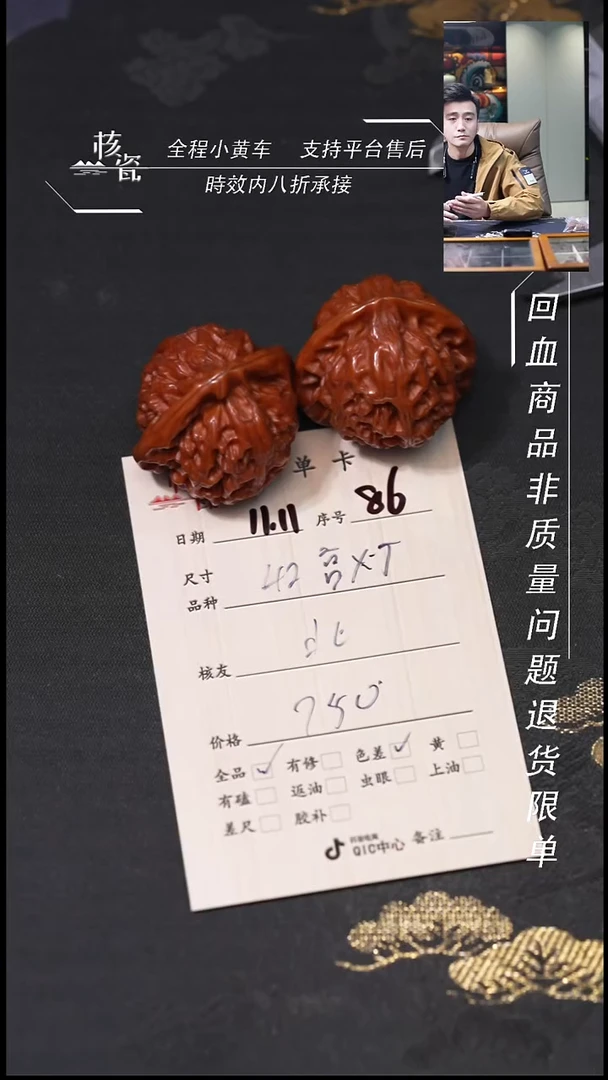 核瓷
全程小黄车 支持平台售后
時效内八折承接
回血商品非质量问题退货限单
单卡
日期 11.11 序号 86
尺寸
品种 42高XT
核友
价格 750
全品 有修 色差 黄
有磕 返油 虫眼 上油
差尺 胶补
QIC中心 备注